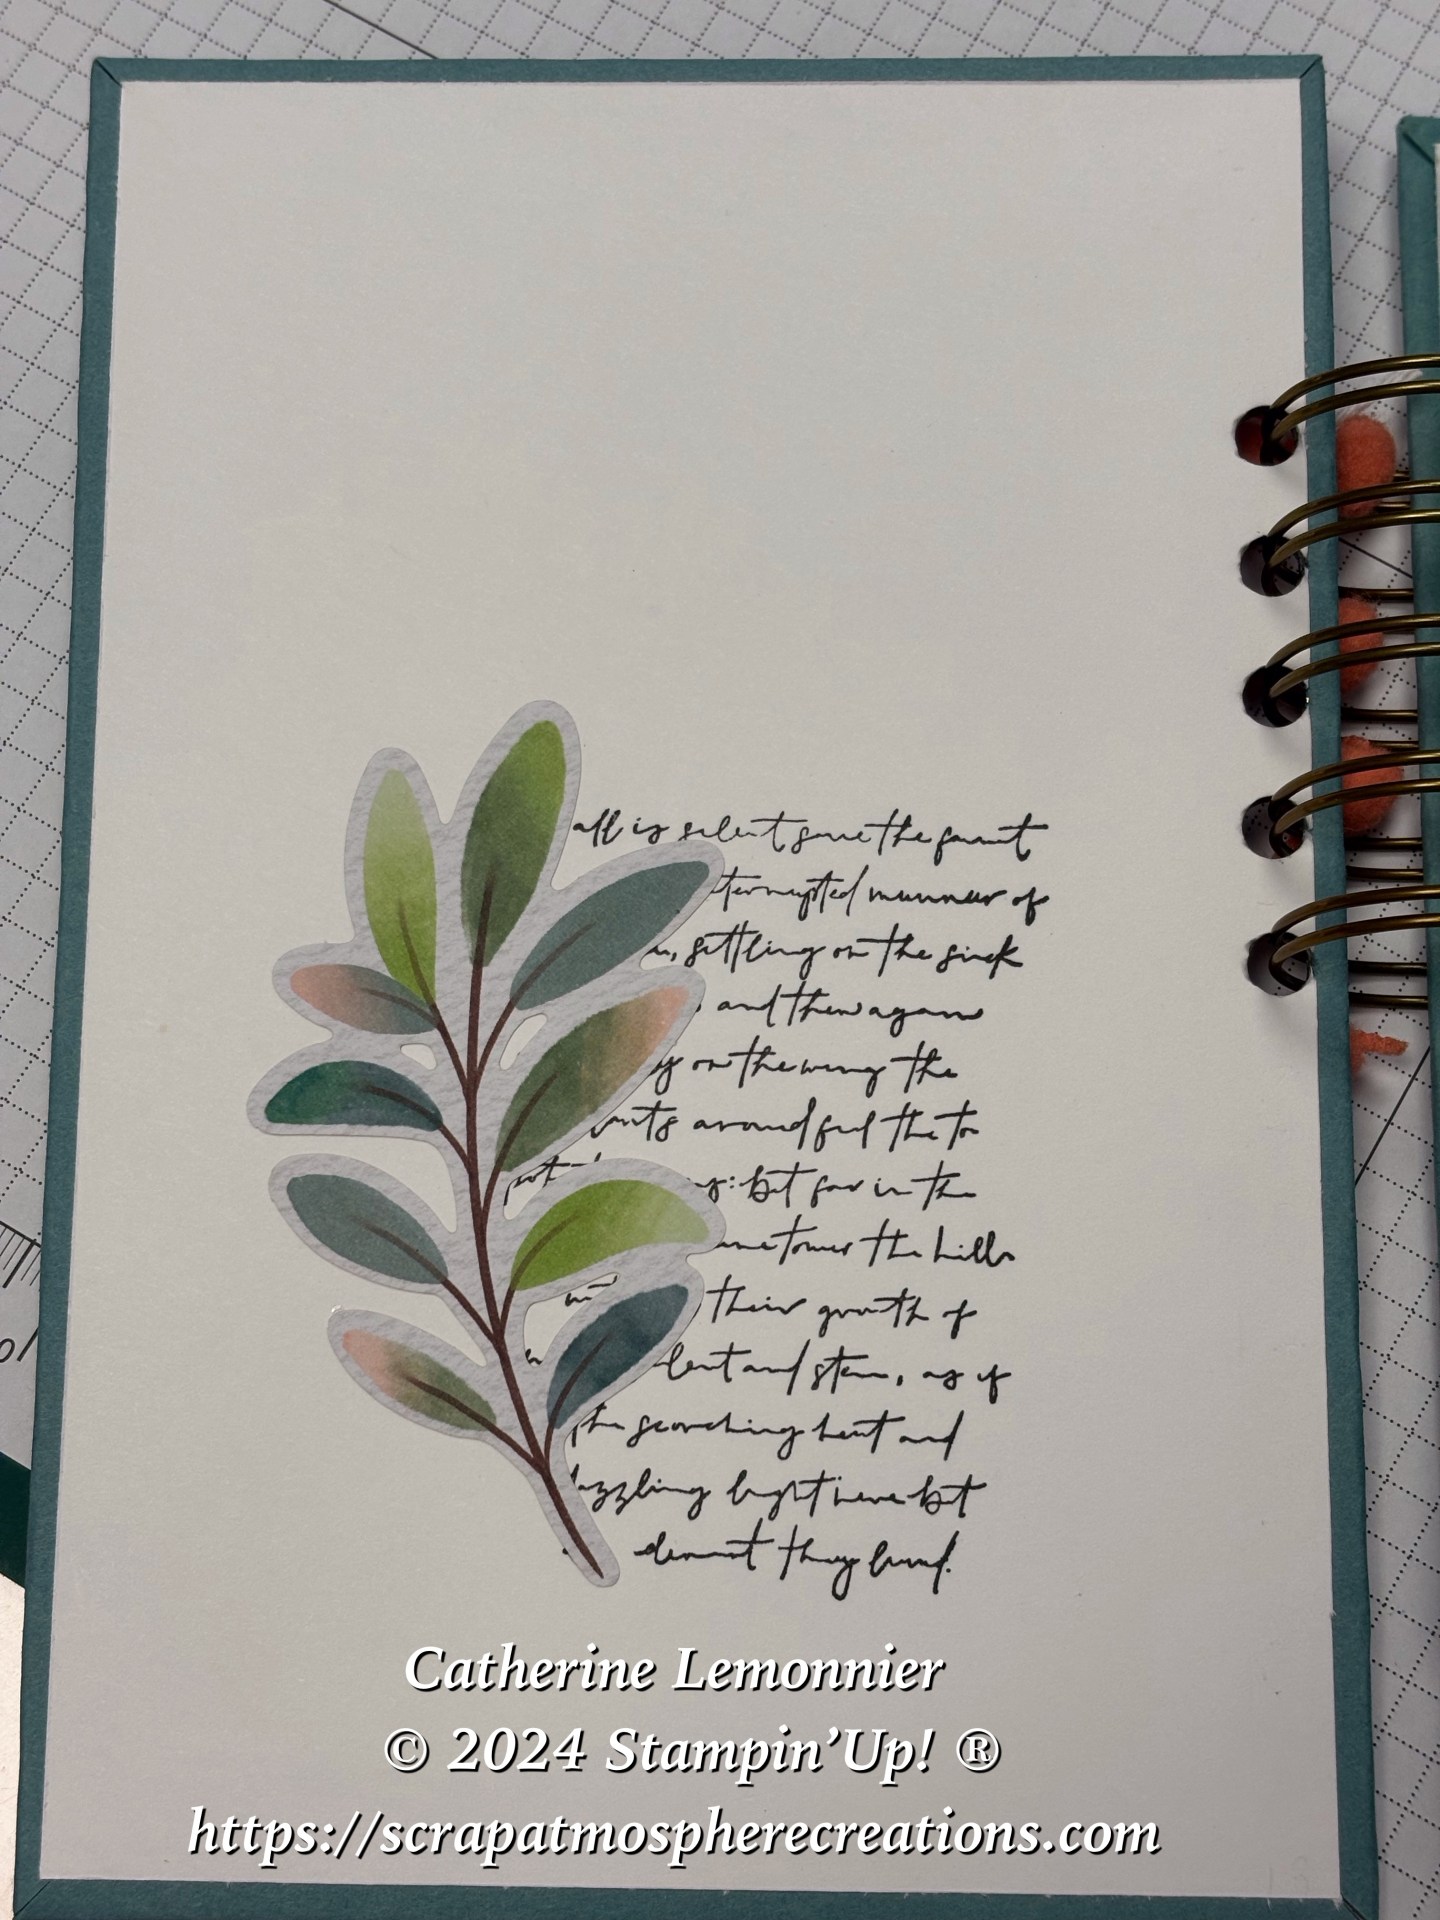 all is silent save the faint
manner of
settling on the
and then again
on the wing the
around feel the to
: but far in the
the hills
their growth of
and stem, as if
the scorching heat and
dazzling light were but
element they lived.
Catherine Lemonnier
© 2024 Stampin’Up! ®
https://scrapatmospherecreations.com